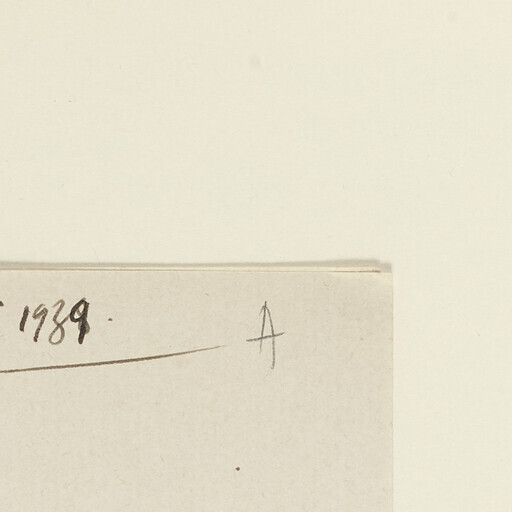 1939. A